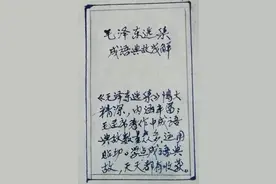 毛泽东选集
成语典故解
《毛泽东选集》博大
精深，内涵丰富；
著作中成语
典故数量众多，运用
贴切。学点成语典
故，天天都有收获。